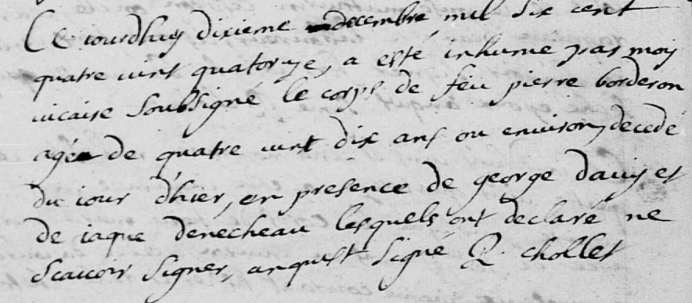 Ce iourdhuy dixieme decembre mil six cent
quatre vint quatorze, a esté inhumé par moy
vicaire soubsigné le corps de feu pierre borderon
agé de quatre vint dix ans ou environ, decedé
du iour d'hier, en presence de george davy et
de iaque denecheau lesquels ont declaré ne
scavoir signer, enquest signé Chollet